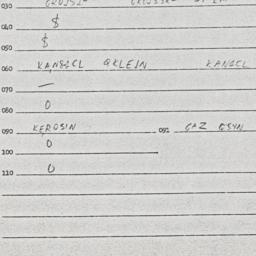 030
040 $
050 $
060 KANSEL &KLEIN KANSEL
070 —
080 0
090 KEROSIN 091 GAZ
100 0
110 0